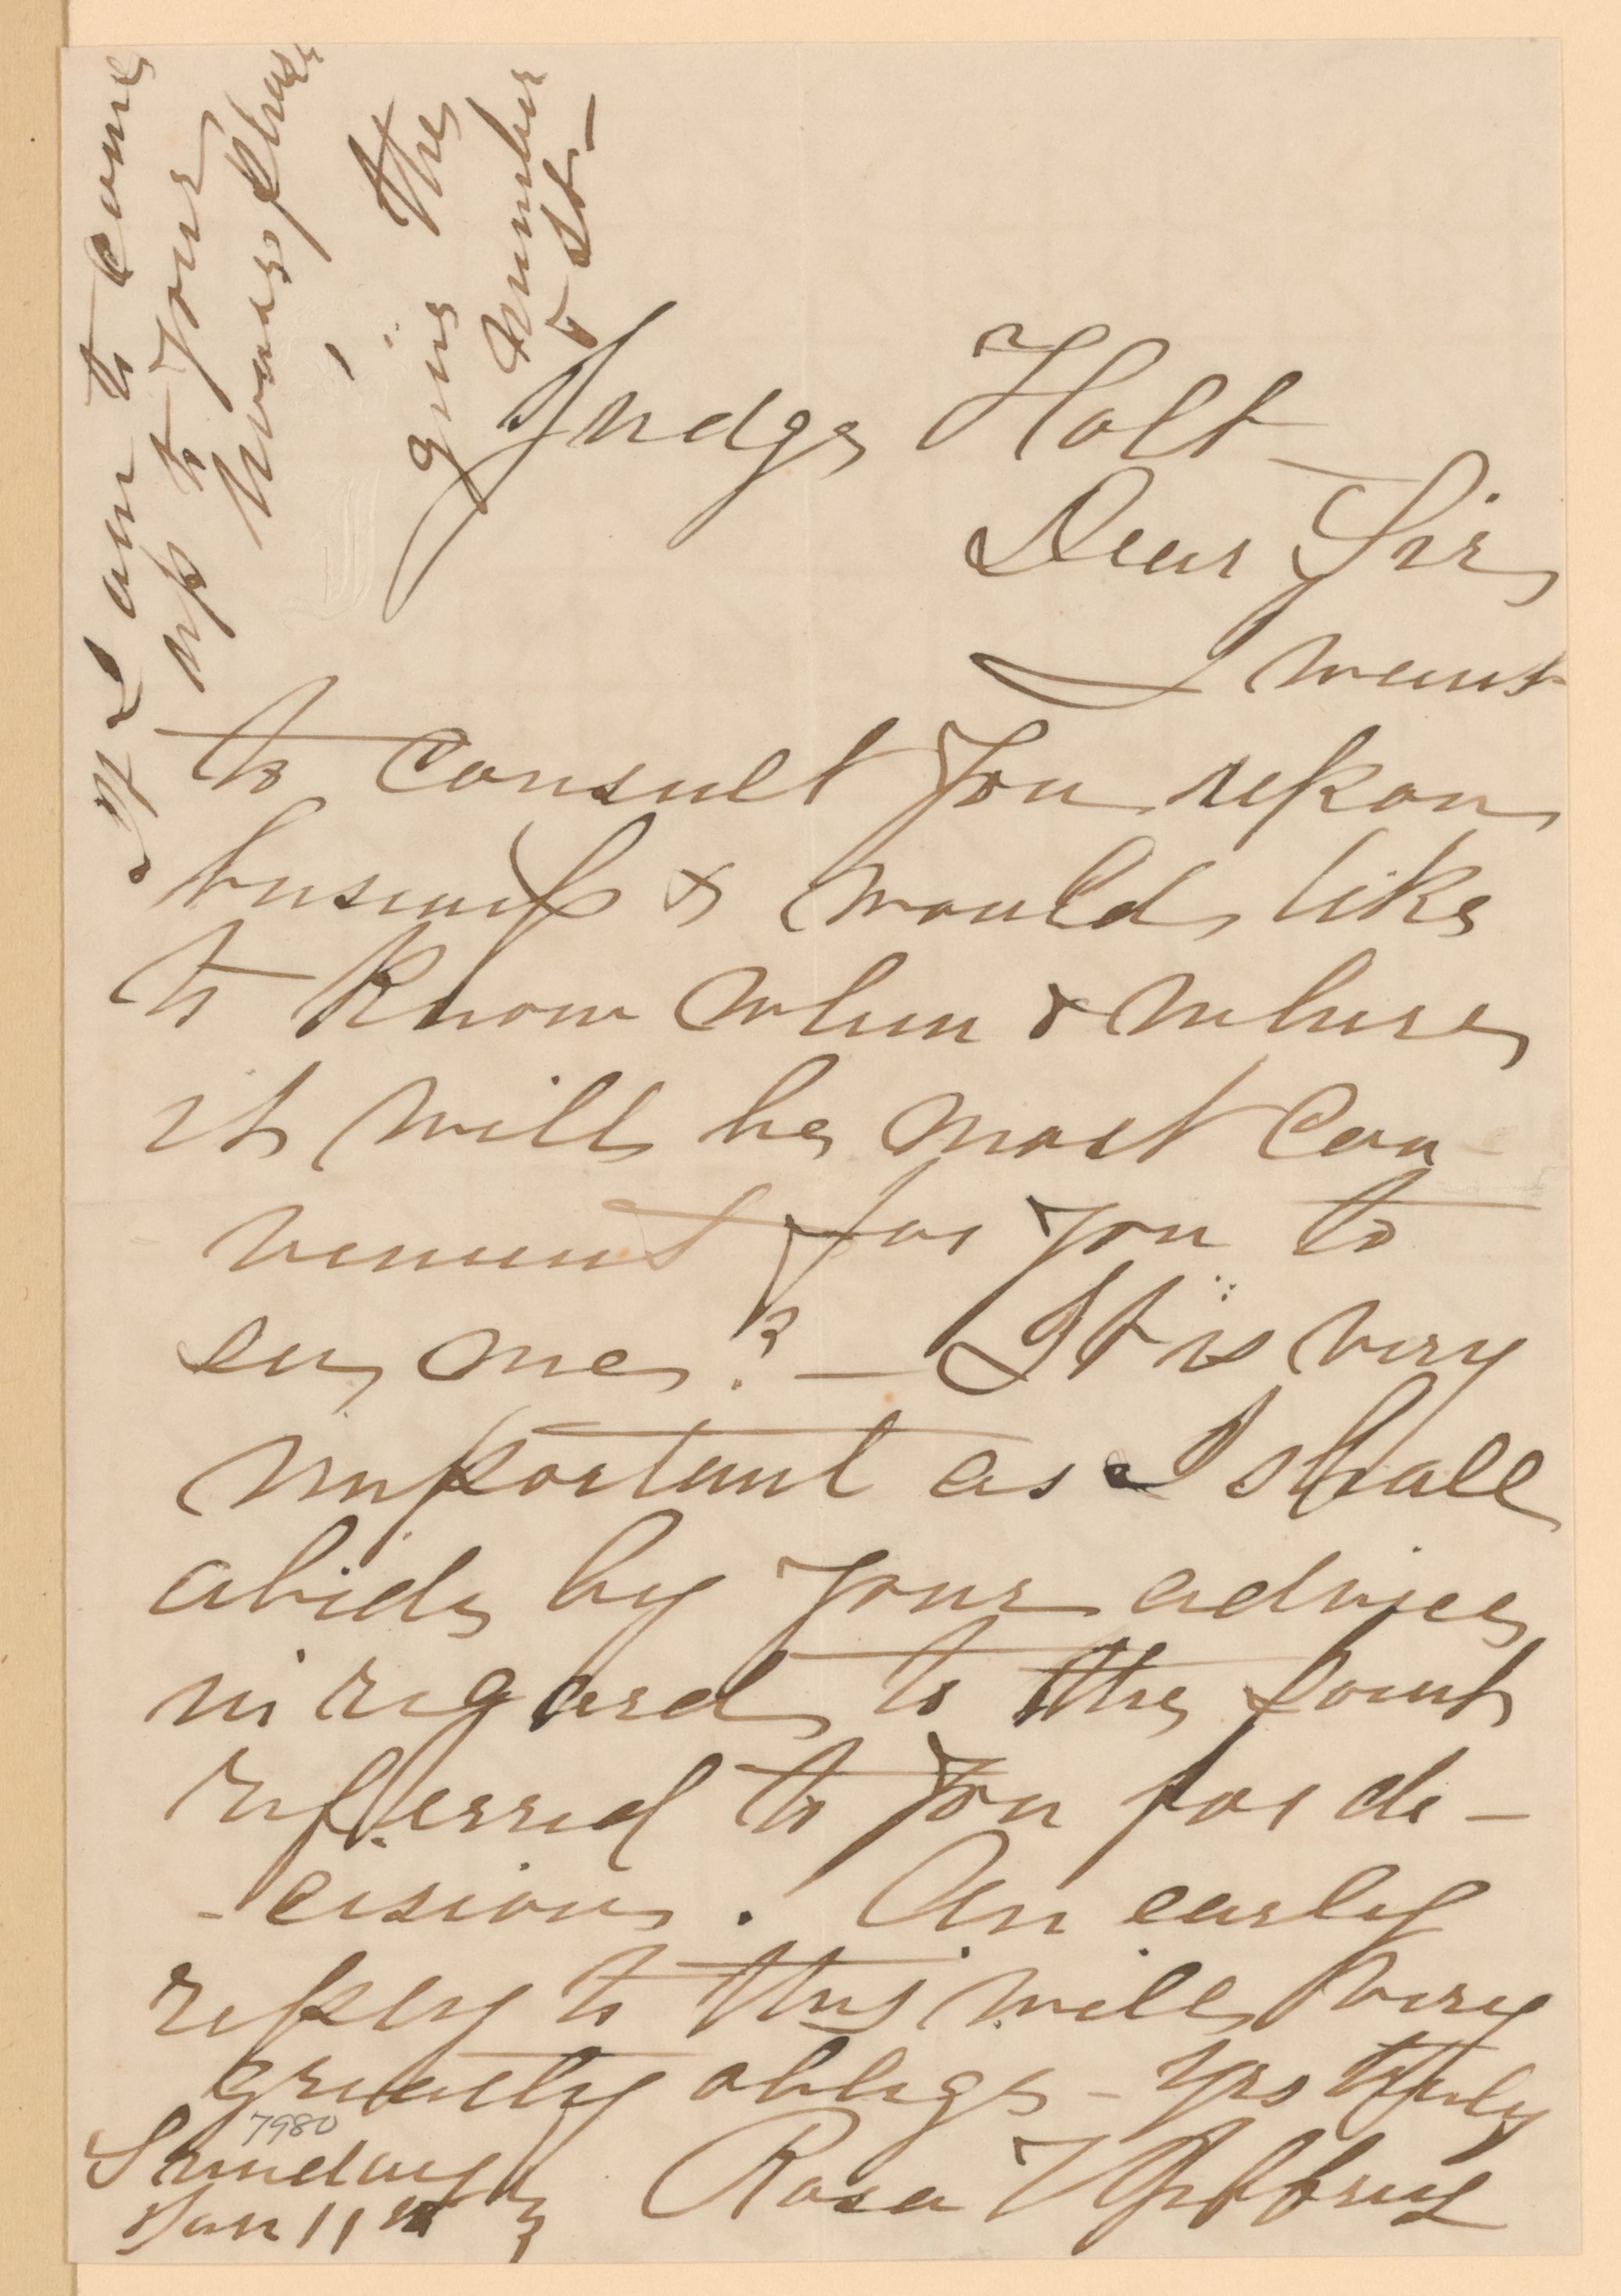 Judge Holt—
Dear Sir,
I want
to consult you upon
business & would like
to know when & where
it will be most con
venient for you to
see me?— It is very
important as I shall
abide by your advice
in regard to the point
referred to you for de-
-cision. An early
reply to this will very
greatly oblige - Yrs truly
Rosa
7980
Sunday
Jan 11th
If I am to come
up to your
house please
give the
number
& St—